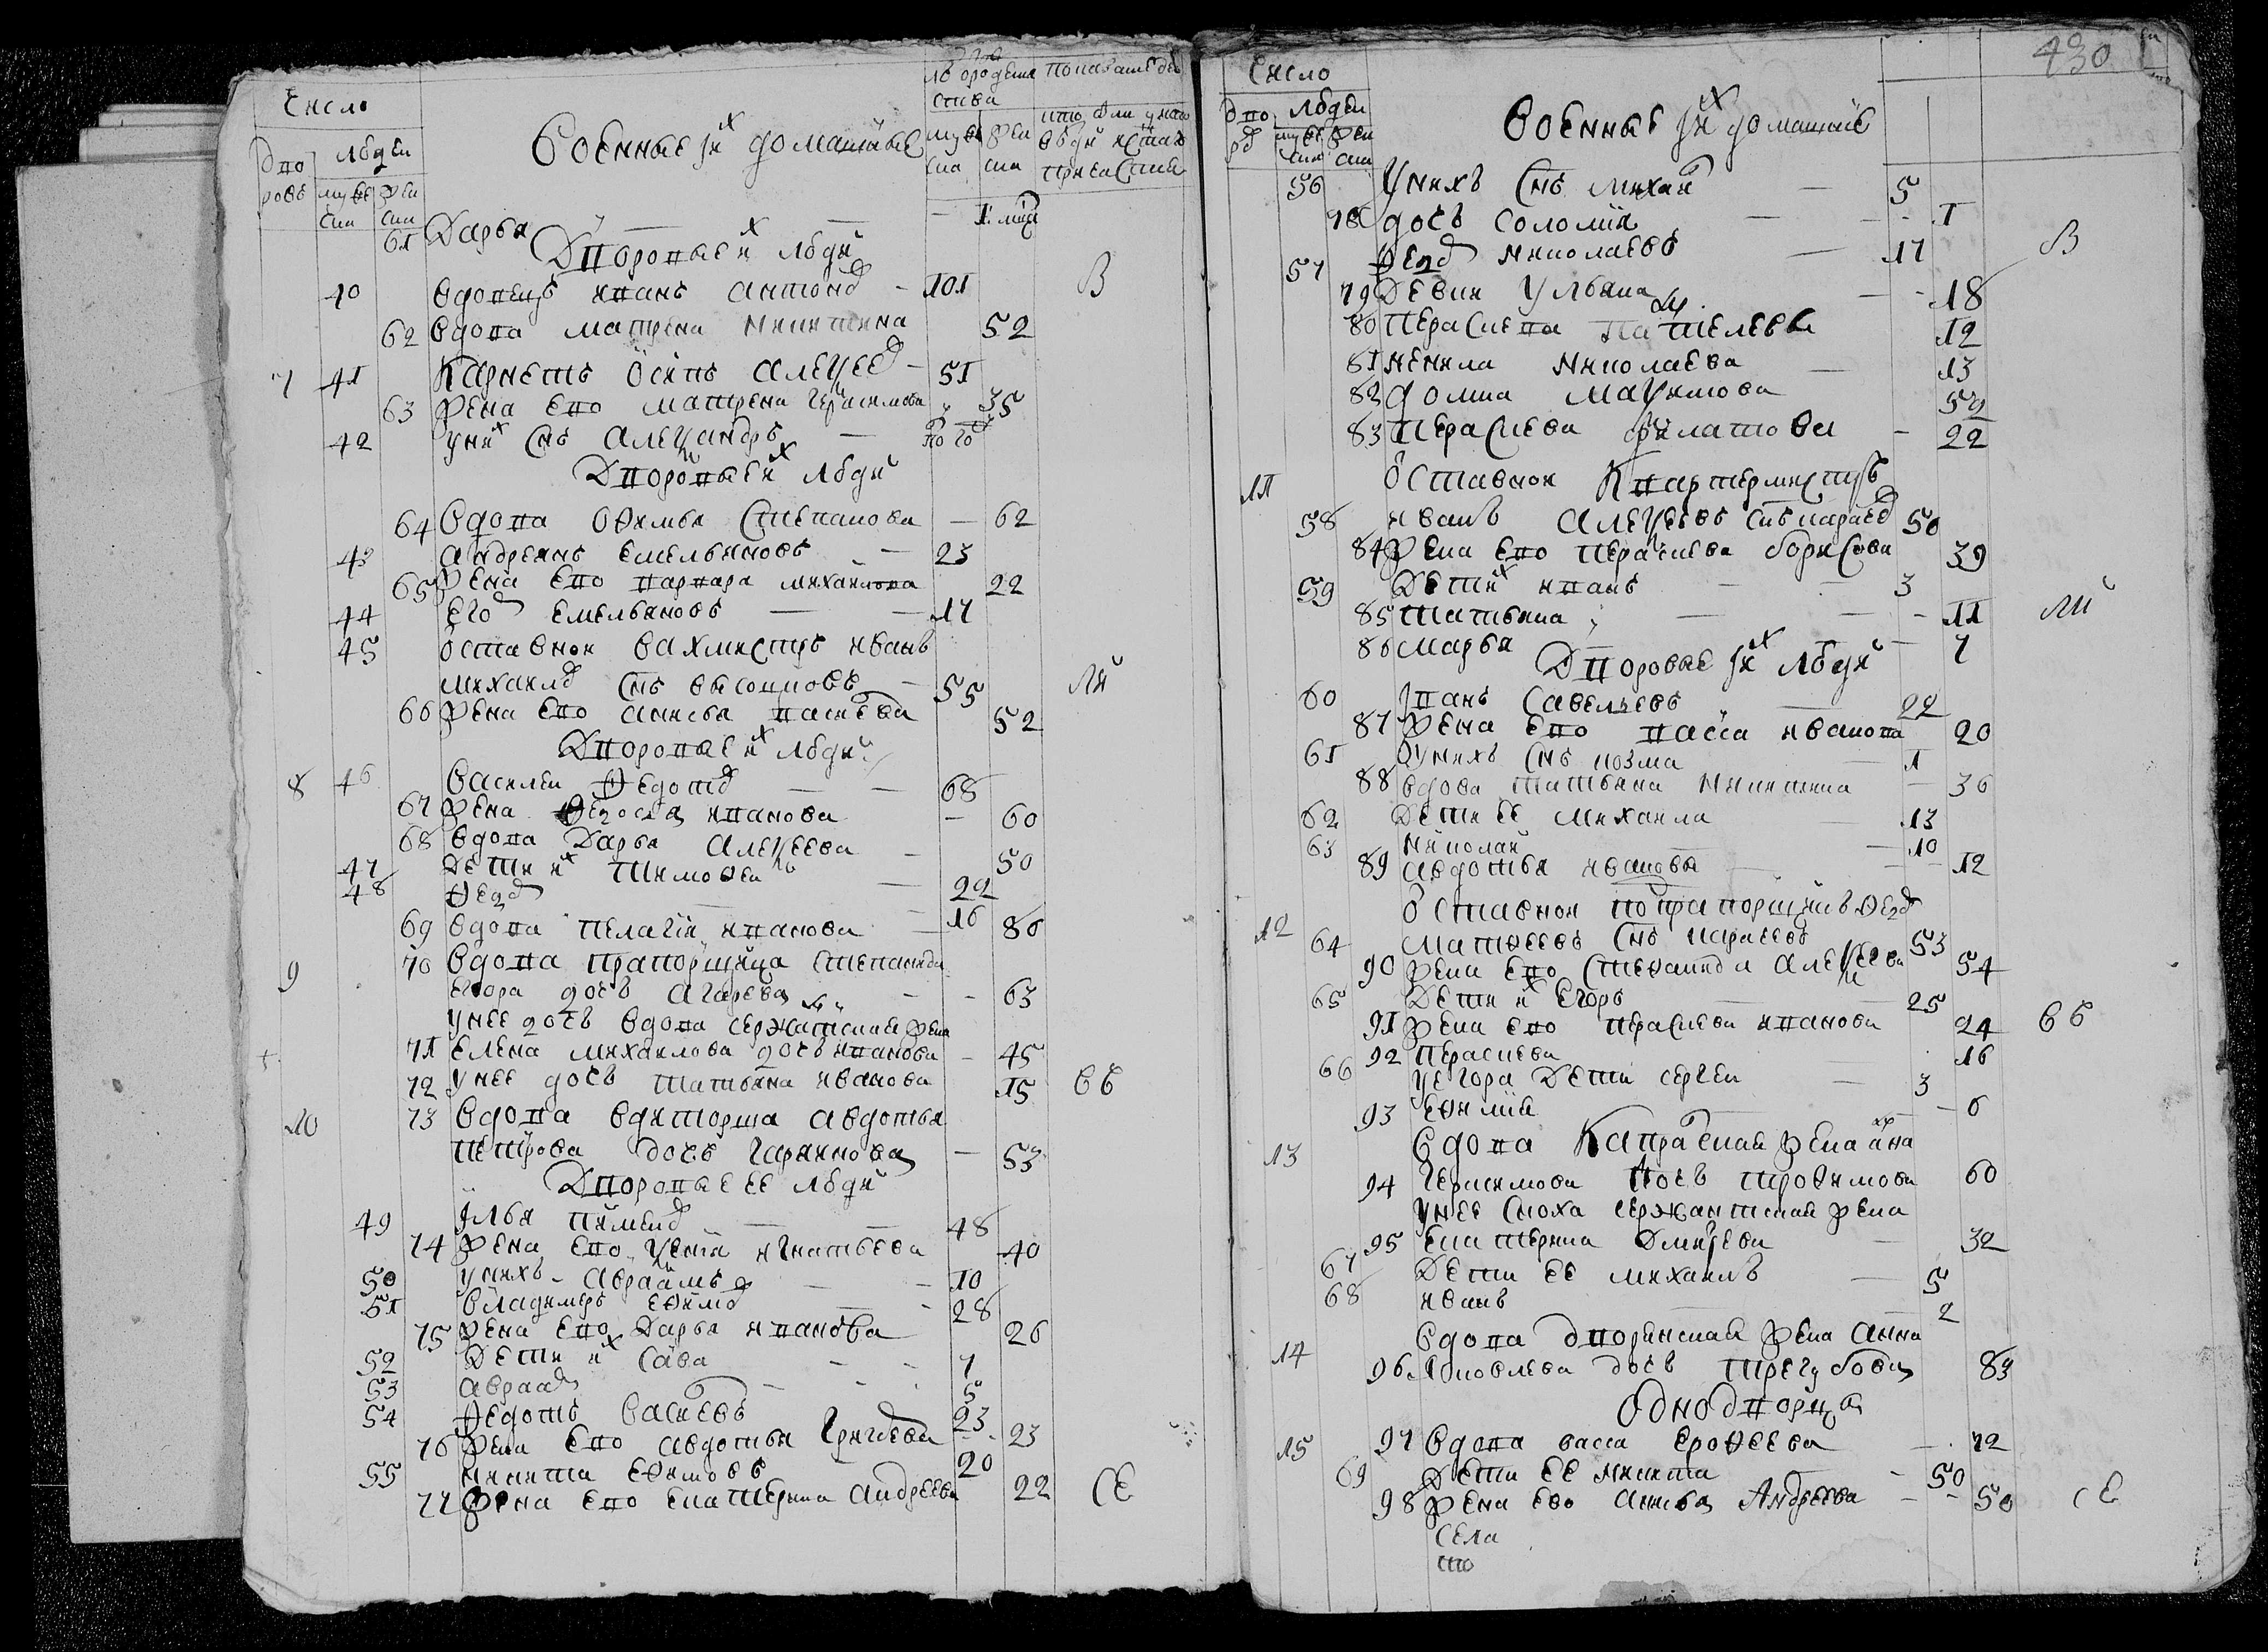 Число
Дво
ровъ
Людеи
муже
ска
жен
ска
Военные и их домашные
От рождения
муж
ска
жен
ска
61 Дарья — 1 мцъ
Дворовые их люди
40 Вдовецъ Иванъ Антонов 101
В
62 Вдова Матрена Никитина 52
7 41 Карнетъ Осипъ Алеѯеев 51
63 Жена ево Матрена Герасимова 35
42 У них снъ Алеѯандръ
Дворовые их люди
64 Вдова Офимья Степанова — 62
43 Андреянъ Емельяновъ — 23
65 Жена ево Варвара Михаилова 22
44 Егор Емельяновъ — 17
45 Оставнои вахмистръ Иванъ
Михаилов снъ Высоцковъ 55
66 Жена ево Анисья 52
Дворовые их люди
8 46 Василеи Федотов 68
67 Жена Федосья Иванова — 60
68 Вдова Дарья Алеѯеева — 50
47 Дети их Тимофеи — 22
48 Федор — 16
69 Вдова Пелагия Иванова — 86
9 70 Вдова прапорщица Степанида
Егора дочь Агарева — 63
У нее дочь вдова сержантская жена
71 Елена Михаилова дочь Иванова — 45
72 У нее дочь Татьяна Иванова 15
10 73 Вдова Авдотья
Петрова дочь — 53
Дворовые ее люди
49 Илья 48
74 Жена ево Ѯения Игнатьева 40
50 У нихъ Авраамъ — 10
51 Владимеръ Ефимов — 28
75 Жена ево Дарья Иванова 26
52 Дети их Сава — 7
53 Авраам — 5
54 Федотъ 23
76 Жена ево Авдотья Григорева 23
55 Никита Ефимовъ 20
77 Жена ево Екатерина Андреева 22
СЕ
430
Число
Дво
Людеи
муже
ска
жен
ска
Военные и их домашние
56 У нихъ снъ Михаи — 5
78 дочь Соломия — 1
57 Федор Николаевъ — 17
В
79 Девки Ульяна — 18
80 Параскева 12
81 Ненила Николаева — 13
82 Домна Маѯимова 59
83 Параскева Филатова — 22
11 Оставнои квартермистръ
58 Иванъ Алеѯеевъ снъ 50
84 Жена ево Параскева Борисова 39
59 Дети их Иванъ — 3
85 Татьяна — 11
86 Марья — 7
Дворовые их люди
60 Иванъ Савельевъ — 22
87 Жена ево Васса Иванова 20
61 У нихъ снъ Козма — 1
88 Вдова Татьяна Никитина — 36
62 Дети ее Михаила — 13
63 Николаи — 10
89 Авдотья Иванова — 12
12 Оставнои подпрапорщикъ Федор
64 Матфеевъ снъ 53
90 Жена ево Стефанида Алеѯеева 54
65 Дети их Егоръ — 25
91 Жена ево Параскева Иванова 24
92 Параскева 16
66 У Егора дети Сергеи — 3
93 Ефимия — 6
13 Вдова капралская жена Анна
94 Герасимова дочь Трофимова 60
У нее сноха сержантская жена
95 Екатерина Дмитрева — 32
67 Дети ее Михаилъ — 5
68 Иванъ — 2
14 Вдова дворянская жена Анна
96 Яковлева дочь Трегубова 83
Однодворца
15 97 Вдова Васса Ерофеева — 72
69 Дети ее Никита — 50
98 Жена ево Анисья Андреева — 50
СЕ
Села